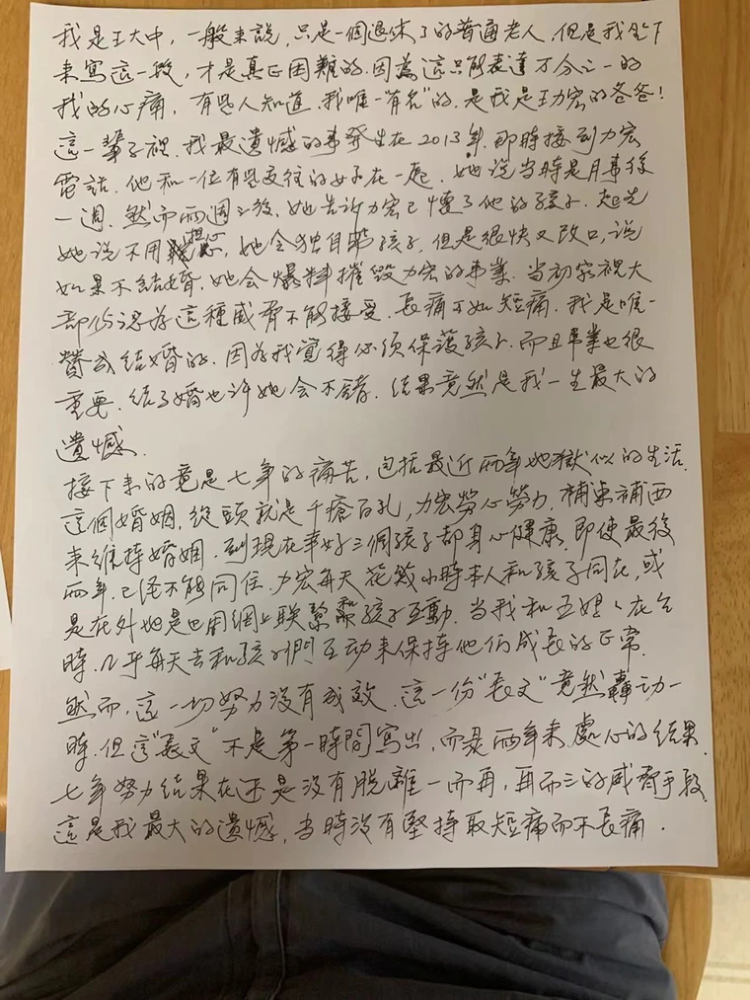 我是王大中，一般來說，只是一個退休了的普通老人，但是我坐下
來寫這一段，才是真正困難的，因為這只能表達万分之一的
我的心痛，有些人知道，我唯一"有名"的，是我是王力宏的爸爸！
這一輩子裡，我最遺憾的事發生在2013年，即時接到力宏
電話，他和一位有些交往的女子在一起，她說當時是月事後
一週，然而兩週之後，她告訴力宏已懷了他的孩子，起先
她說不用担心，她会独自養孩子，但是很快又改口，說
如果不結婚，她会爆料摧毀力宏的事業，當初家裡大
部份認為這種威脅不能接受，長痛不如短痛，我是唯一
贊成結婚的，因為我覺得必須保護孩子，而且事業也很
重要，結了婚也许她会不錯，結果竟然是我一生最大的
遺憾．
接下來的竟是七年的痛苦，包括最近兩年地獄似的生活，
這個婚姻，從頭就是千瘡百孔，力宏勞心勞力，補東補西
來維持婚姻，到現在幸好三個孩子都身心健康，即使最後
兩年，已經不能同住，力宏每天花幾小時本人和孩子同在，或
是在外地是也用網上联繫和孩子互動，當我和王媽媽在台
時，几乎每天去和孩子們互动來保持他们成長的正常，
然而，這一切努力沒有成效，這一份"長文"竟然轟动一
時，但這"長文"不是第一時間寫出，而是兩年來，處心的結果，
七年努力結果在还是沒有脫離一而再，再而三的威脅手段，
這是我最大的遺憾，當時沒有堅持取短痛而不長痛．